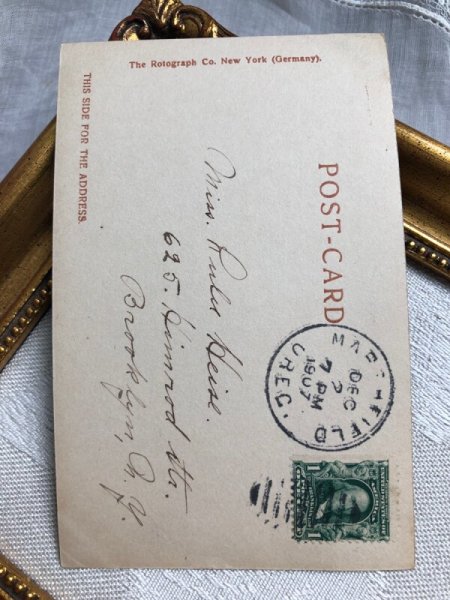 The Rotograph Co. New York (Germany).
POST-CARD
THIS SIDE FOR THE ADDRESS.
MARSHFIELD
DEC
2
7 PM
1907
OREG.
Miss. Lulu Heise.
625 Himrod Str.
Brooklyn, N. Y.
1 1